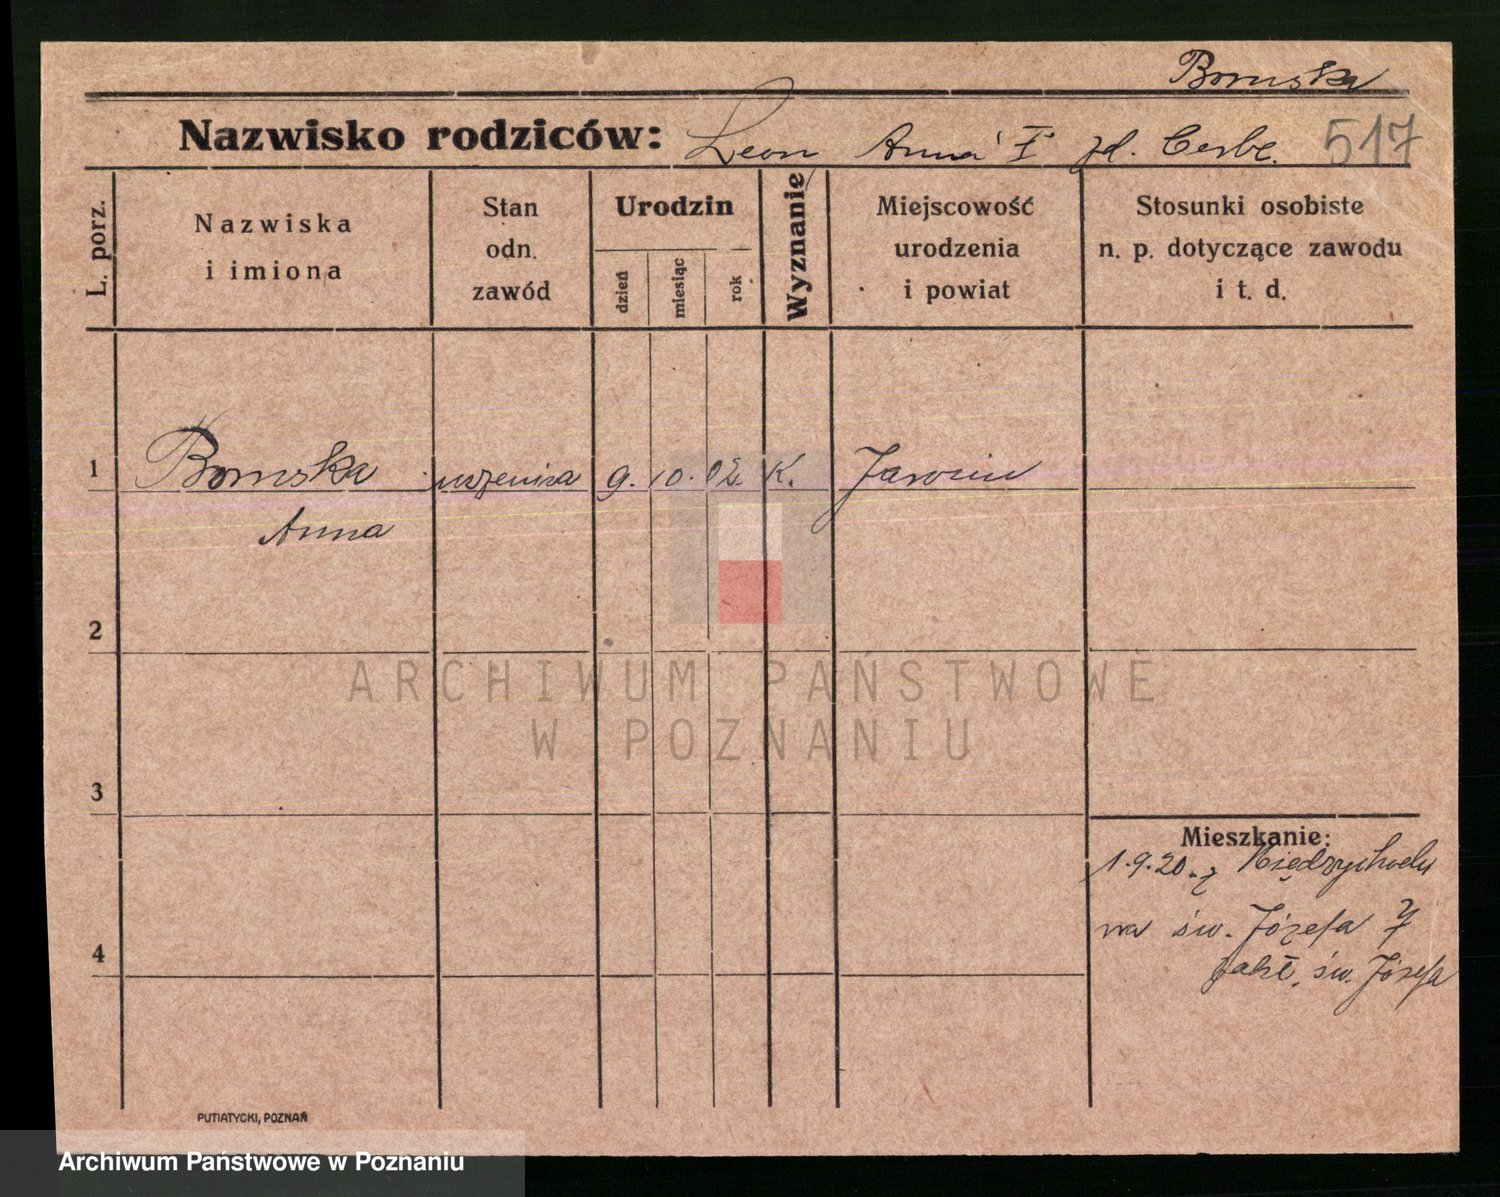 Bornska
Nazwisko rodziców: Leon Anna I zd. Cerbe. 517
L. porz.
Nazwiska
i imiona
Stan
odn.
zawód
Urodzin
dzień
miesiąc
rok
Wyznanie
Miejscowość
urodzenia
i powiat
Stosunki osobiste
n. p. dotyczące zawodu
i t. d.
1 Bornska uczenica 9. 10. 02. K. Jarocin
Anna
2
ARCHIWUM PAŃSTWOWE
W POZNANIU
3
Mieszkanie:
1.9.20. z Międzychodu
na św. Józefa 7
zakł. św. Józefa
4
PUTIATYCKI, POZNAŃ
Archiwum Państwowe w Poznaniu